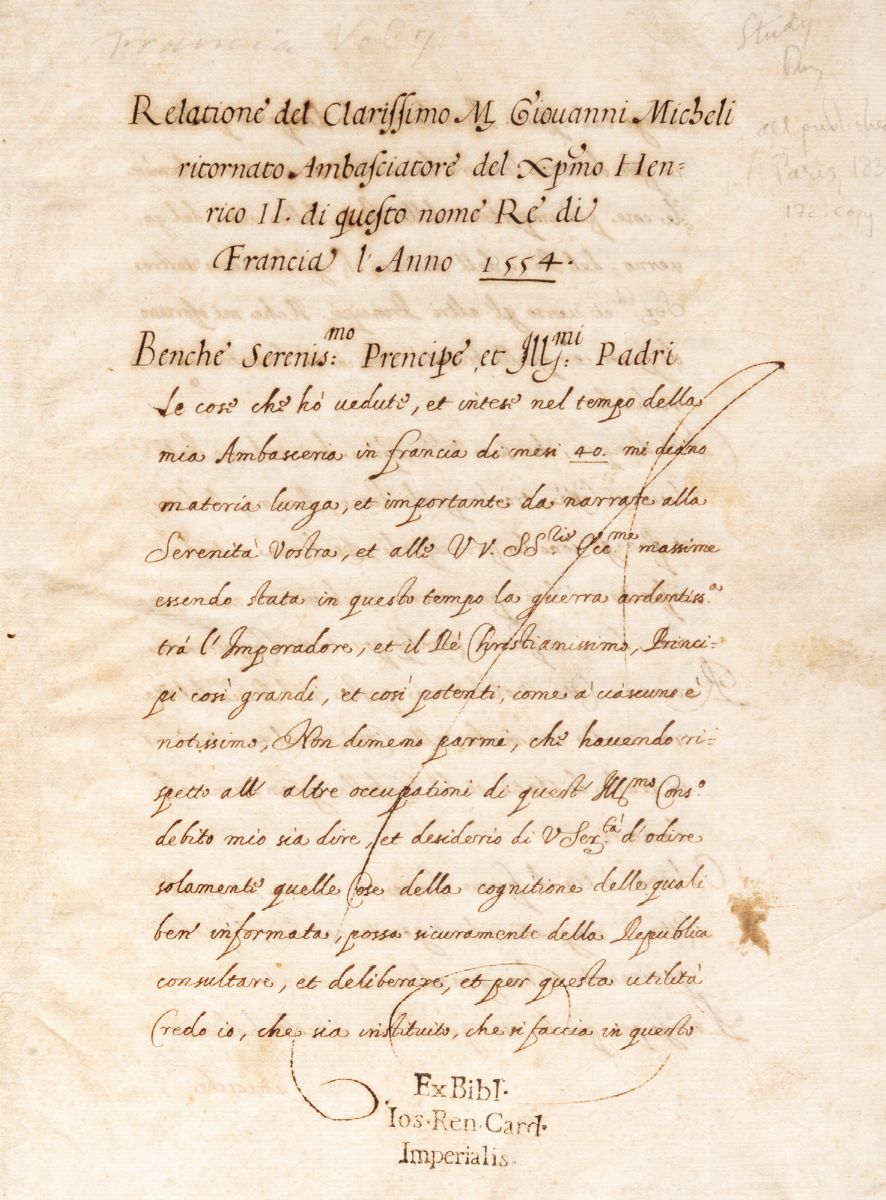 Francia
Study
Relatione del Clarissimo M. Giouanni Micheli
ritornato Ambasciatore del Xpmo Hen=
rico II. di questo nome Re di
Francia l'Anno 1554.
Paris, 183
17c. copy
Benche Serenis:mo Prencipe, et Ill:mi Padri
Le cose che hò uedute, et intese nel tempo della
mia Ambasceria in francia di mesi 40. mi diano
materia lunga, et importante da narrare alla
Serenità Vostra, et alle VV. SS.rie Ecc.me massime
essendo stata in questo tempo la guerra ardentiss.a
trà l'Imperadore, et il Rè Christianissimo, Princi=
pi così grandi, et così potenti, come à ciascuno è
notissimo, Non dimeno parmi, che hauendo ri=
spetto all' altre occupationi di quest' Ill.mo Cons.o
debito mio sia dire, et desiderio di V Ser.tà d'odire
solamente quelle Cose della cognitione delle quali
ben' informata, possa sicuramente della Republica
consultare, et deliberare, et per questa utilità
Credo io, che sia instituito, che si faccia in questo
Ex Bibl.
Ios. Ren. Card.
Imperialis.